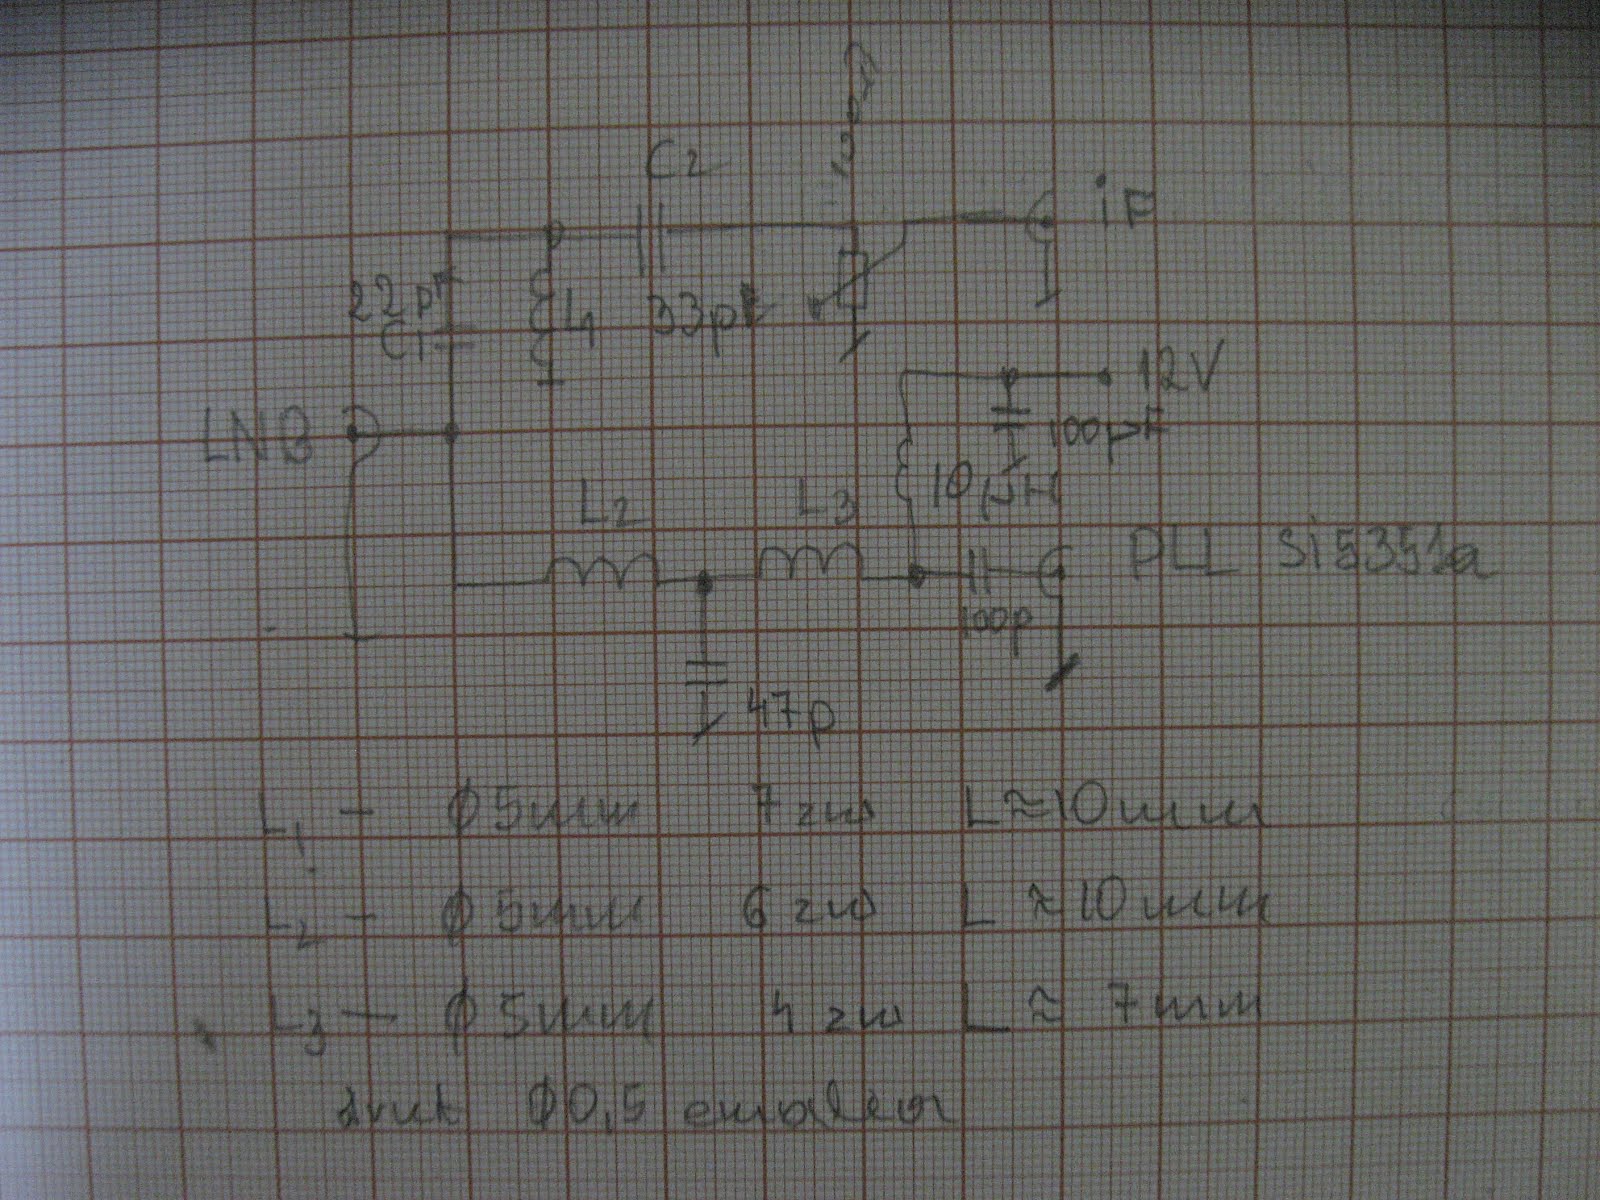 C2
iF
22p
C1
L1
33p
12V
LNB
100µF
10µH
L2
L3
PLL Si5351a
100p
47p
L1 — ϕ5mm 7zw L≈10mm
L2 — ϕ5mm 6zw L≈10mm
L3 — ϕ5mm 4zw L≈7mm
drut ϕ0,5 emalia